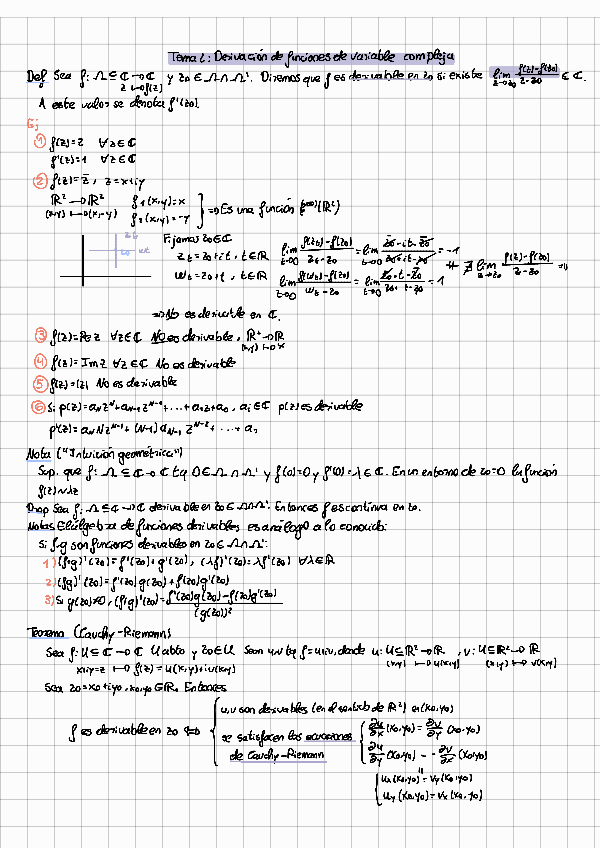 Tema 2: Derivación de funciones de variable compleja
Def Sea f: Ω ⊆ ℂ → ℂ y z0 ∈ Ω ∩ Ω'. Diremos que f es derivable en z0 si existe lim z→z0 (f(z)-f(z0))/(z-z0) ∈ ℂ.
z ↦ f(z)
A este valor se denota f'(z0).
Ej
① f(z)=z ∀z∈ℂ
f'(z)=1 ∀z∈ℂ
② f(z)=z̄, z=x+iy
ℝ² → ℝ² f₁(x,y)=x
(x,y) ↦ (x,-y) f₂(x,y)=-y } ⇒ Es una función (ℝ²)
Fijamos z0∈ℂ
zt = z0+it, t∈ℝ lim t→0 (f(zt)-f(z0))/(zt-z0) = lim t→0 (z̄0-it-z̄0)/(z0+it-z0) = -1
wt = z0+t, t∈ℝ lim t→0 (f(wt)-f(z0))/(wt-z0) = lim t→0 (z̄0+t-z̄0)/(z0+t-z0) = 1
≠ ∄ lim z→z0 (f(z)-f(z0))/(z-z0) ⇒
⇒ No es derivable en ℂ.
③ f(z)=Re z ∀z∈ℂ NO es derivable, ℝ² → ℝ
(x,y) ↦ x
④ f(z)=Im z ∀z∈ℂ No es derivable
⑤ f(z)=|z| No es derivable
⑥ Si p(z)=aN z^N+aN-1 z^N-1+...+a1z+a0, ai∈ℂ p(z) es derivable
p'(z)=aN N z^N-1+(N-1) aN-1 z^N-2+...+a1
Nota ("Intuición geométrica")
Sup. que f: Ω ⊆ ℂ → ℂ tq 0∈Ω∩Ω' y f(0)=0 y f'(0)=λ∈ℂ. En un entorno de z0=0 la función
f(z)~λz
Prop Sea f: Ω⊆ℂ→ℂ derivable en z0∈Ω∩Ω'. Entonces f es continua en z0.
Notas El álgebra de funciones derivables es análogo a lo conocido:
Si f,g son funciones derivables en z0∈Ω∩Ω':
1) (f+g)'(z0)=f'(z0)+g'(z0), (λf)'(z0)=λf'(z0) ∀λ∈ℝ
2) (fg)'(z0)=f'(z0)g(z0)+f(z0)g'(z0)
3) Si g(z0)≠0, (f/g)'(z0)=(f'(z0)g(z0)-f(z0)g'(z0))/(g(z0))²
Teorema (Cauchy-Riemann)
Sea f: U⊆ℂ→ℂ U abto y z0∈U Sean u,v tq f=u+iv, donde u: U⊆ℝ²→ℝ, v: U⊆ℝ²→ℝ
x+iy=z ↦ f(z)=u(x,y)+iv(x,y) (x,y) ↦ u(x,y) (x,y) ↦ v(x,y)
Sea z0=x0+iy0, x0,y0∈ℝ. Entonces
f es derivable en z0 ⇔ { u,v son derivables (en el sentido de ℝ²) en (x0,y0)
se satisfacen las ecuaciones de Cauchy-Riemann { ∂u/∂x (x0,y0) = ∂v/∂y (x0,y0)
∂u/∂y (x0,y0) = -∂v/∂x (x0,y0)
{ ux(x0,y0)=vy(x0,y0)
uy(x0,y0)=vx(x0,y0)